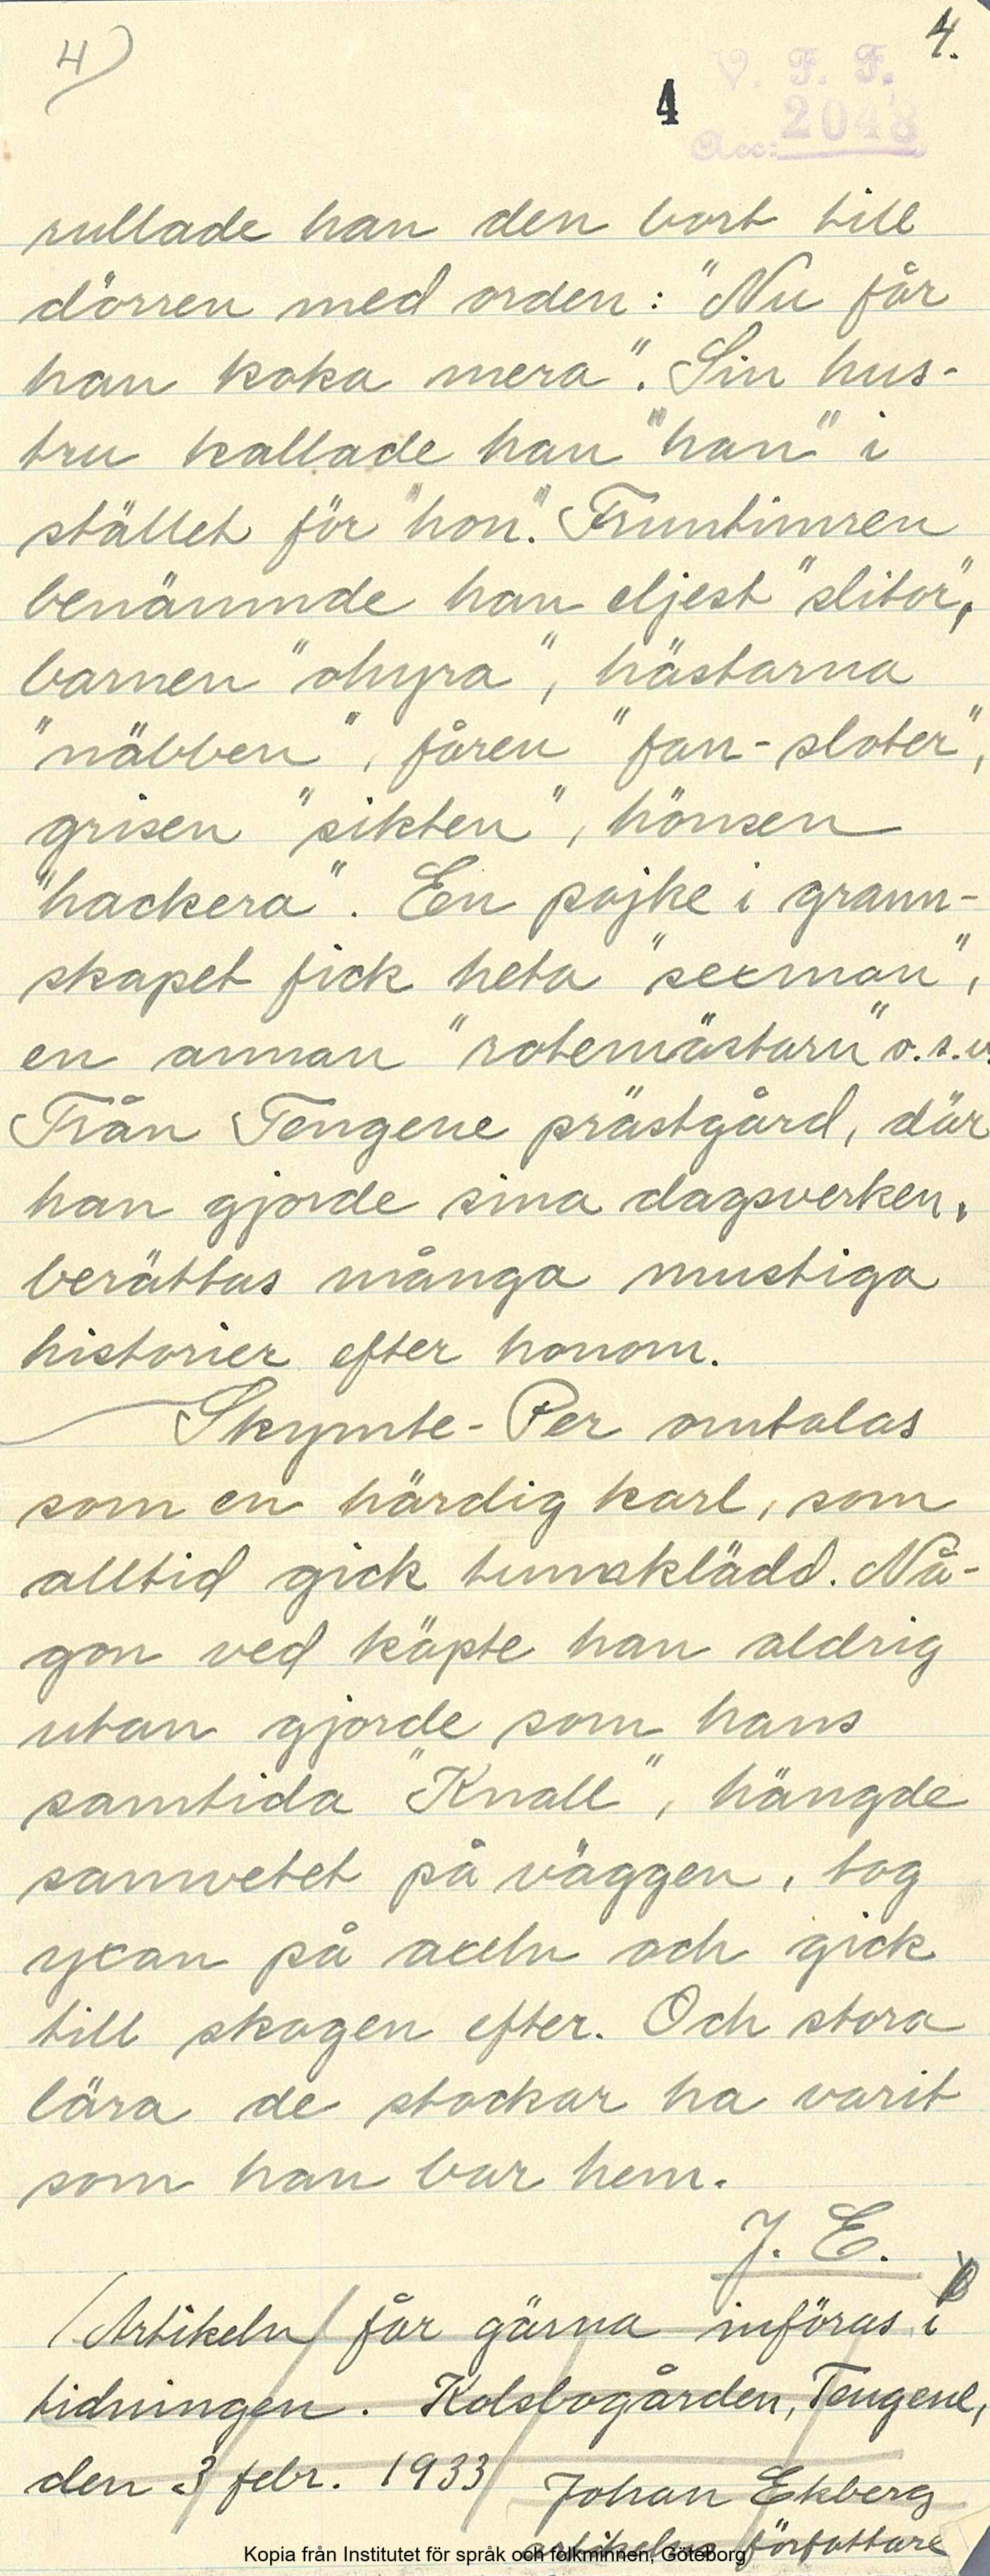 4)
4.
4
V. F. F.
Acc: 2048
rullade han den bort till
dörren med orden: "Nu får
han koka mera". Sin hus-
tru kallade han "han" i
stället för "hon". Fruntimren
benämnde han eljest "slitor",
barnen "ohyra", hästarna
"näbben", fåren "fan-sloter",
grisen "sikten", hönsen
"hackera". En pojke i grann-
skapet fick heta "sexman",
en annan "rotemästarn" o.s.v.
Från Tengene prästgård, där
han gjorde sina dagsverken,
berättas många mustiga
historier efter honom.
Skymte-Per omtalas
som en härdig karl, som
alltid gick tunnklädd. Nå-
gon ved köpte han aldrig
utan gjorde som hans
samtida "Knall", hängde
samvetet på väggen, tog
yxan på axeln och gick
till skogen efter. Och stora
lära de stockar ha varit
som han bar hem.
J. E.
(Artikeln) får gärna införas i
tidningen. Kolsbogården, Tengene,
den 3 febr. 1933 Johan Ekberg
artikelns författare
Kopia från Institutet för språk och folkminnen, Göteborg